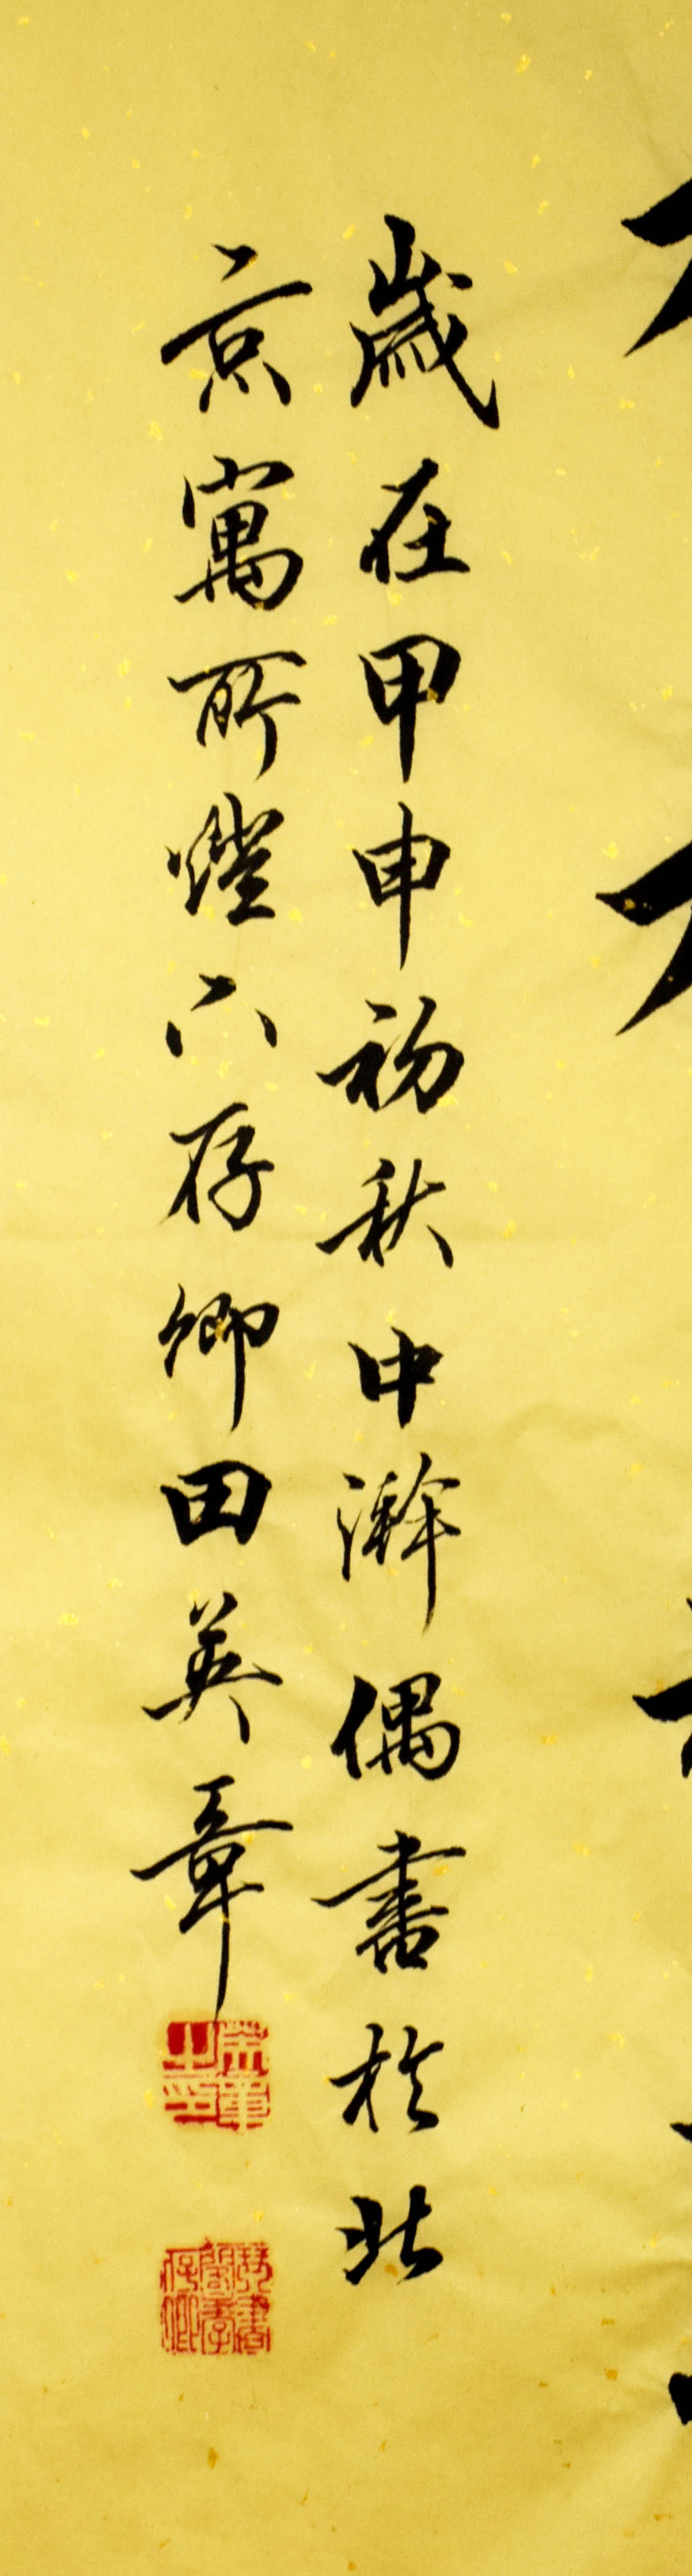 歲在甲申初秋中澣偶書於北
京寓所燈下存卿田英章